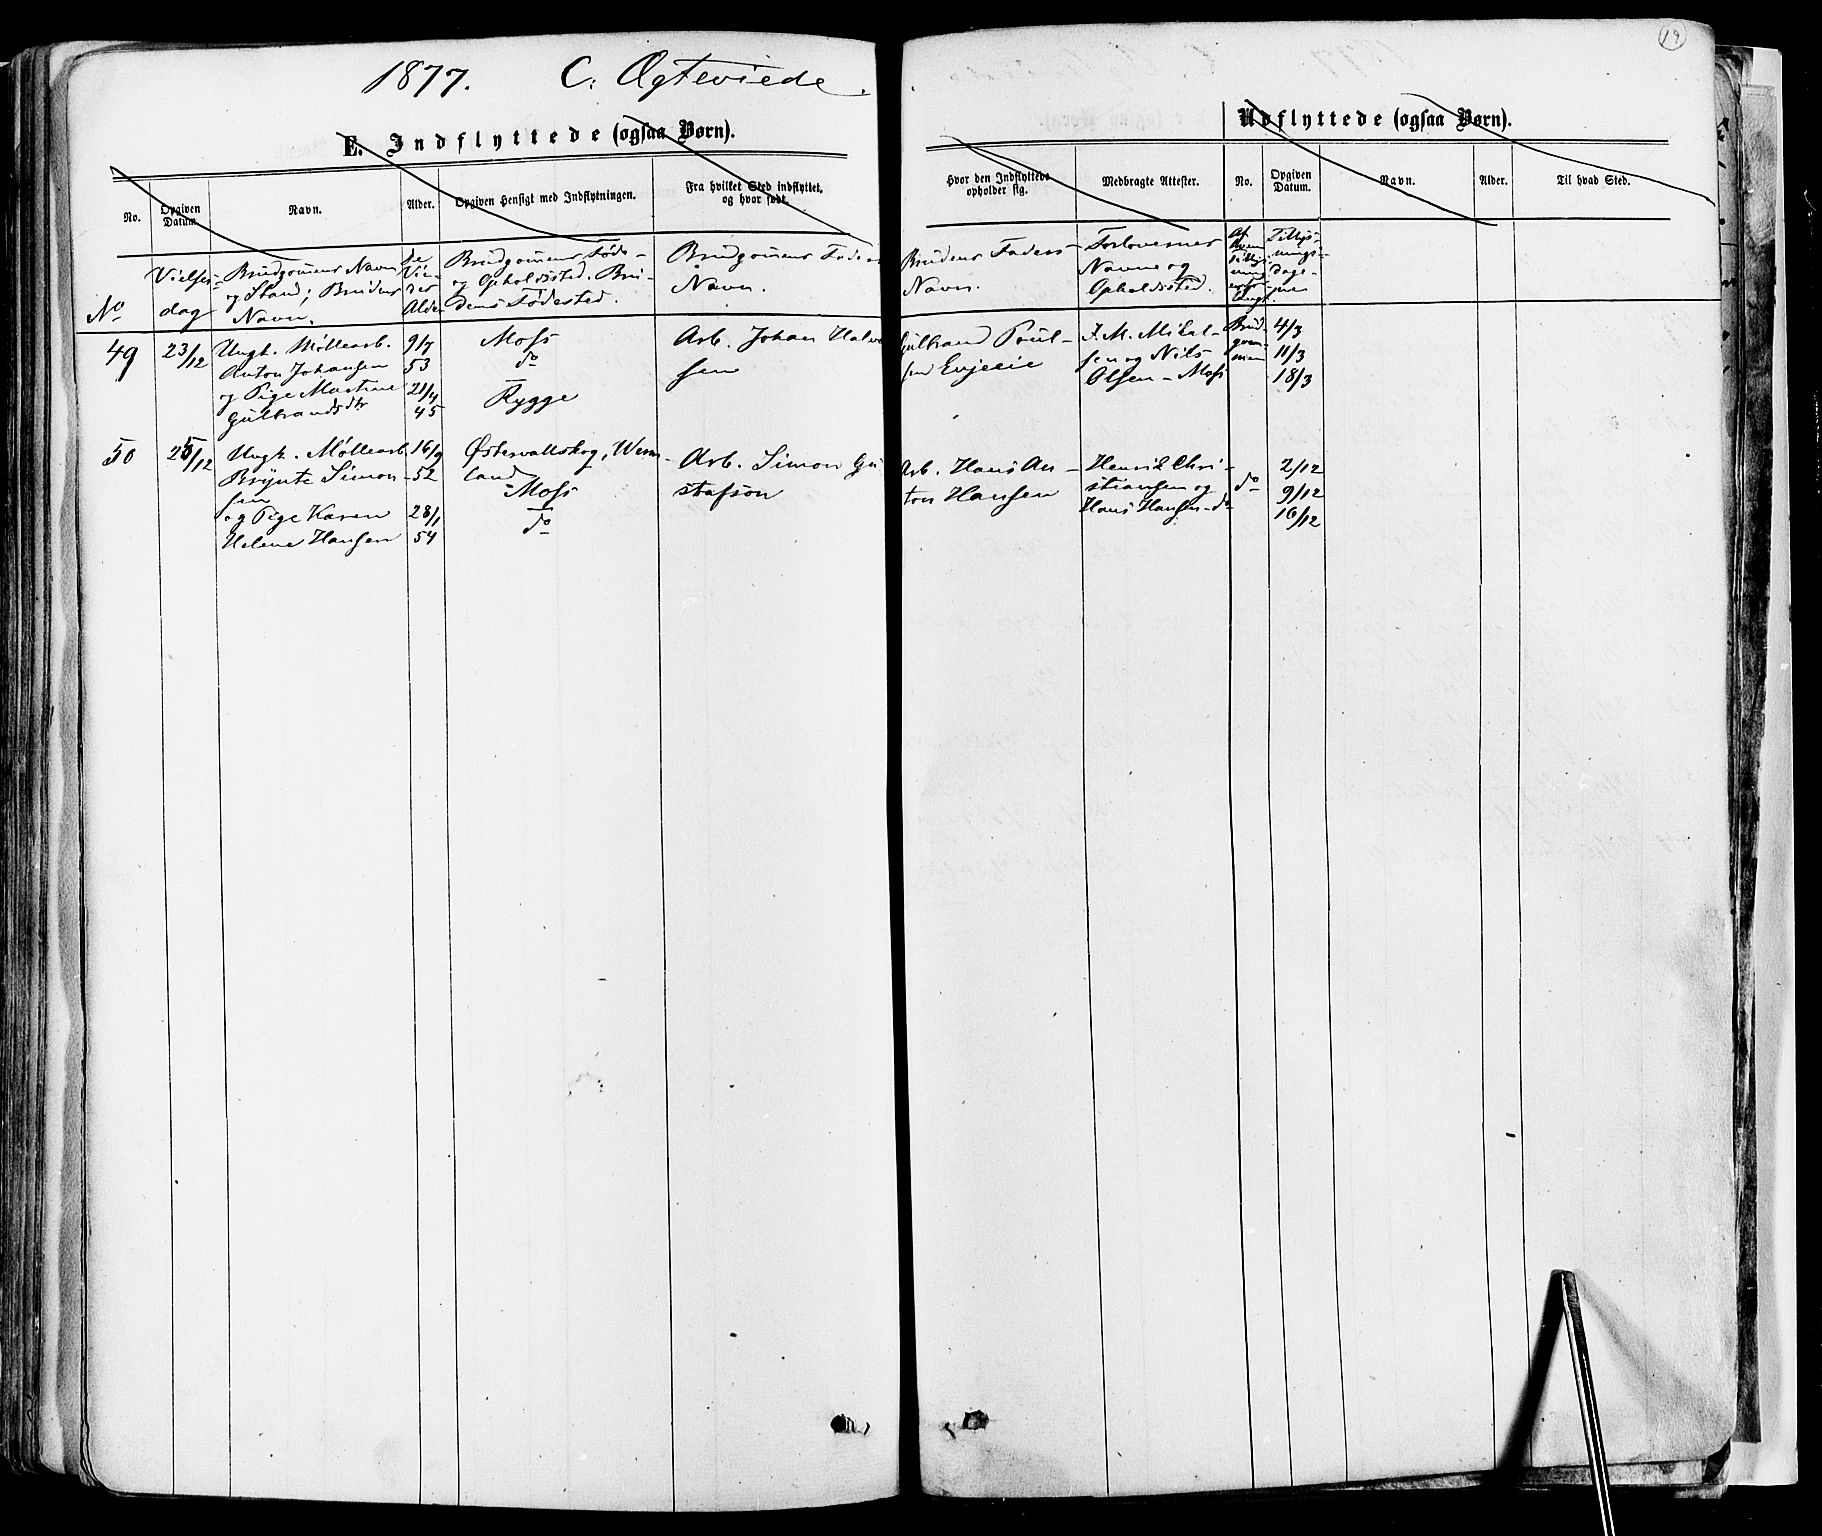 19
1877. C: Ægteviede.
E. Indflyttede (ogsaa Børn).
Udflyttede (ogsaa Børn).
No.
Opgiven Datum.
Navn.
Alder.
Opgiven Hensigt med Indflytningen.
Fra hvilket Sted indflyttet,
og hvor født.
Hvor den Indflyttede
opholder sig.
Medbragte Attester.
No.
Opgiven
Datum.
Navn.
Alder.
Til hvad Sted.
No
Vielses-
dag
Brudgomens Navn
og Stand; Brudens
Navn.
De
Vie-
des
Alder
Brudgomens Føde-
og Opholdssted. Bru-
dens Fødested.
Brudgomens Faders
Navn.
Brudens Faders
Navn.
Forlovernes
Navne og
Opholdssted.
Af
hvem
Tillys-
ningsdage-
49
23/12
Ungk. Møllearb.
Anton Johansen
og Pige Martine
Gulbrandsdtr
9/7
53
21/4
45
Moss
do
Rygge
Arb. Johan Halvor
sen
Gulbrand Poul-
sen Evjeeie
J. M. Mikal-
sen og Nils
Olsen - Moss
Brud-
gom-
men
4/3
11/3
18/3
50
25/12
Ungk. Møllearb
Brynte Simon-
sen
og Pige Karen
Helene Hansen
16/9
52
28/1
54
Østervallskog, Werm-
land
Moss
do
Arb. Simon Gu
stafson
Arb. Hans An-
ton Hansen
Henrik Chri-
stiansen og
Hans Hansen - do
do
2/12
9/12
16/12